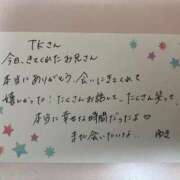 TKさん
今日、きてくれたお兄さん
本当にありがとう、会いにきてくれて
嬉しかった！たくさんお話して、たくさん笑って、
本当に幸せな時間だったよ♡
また会いたいよ、 ゆき